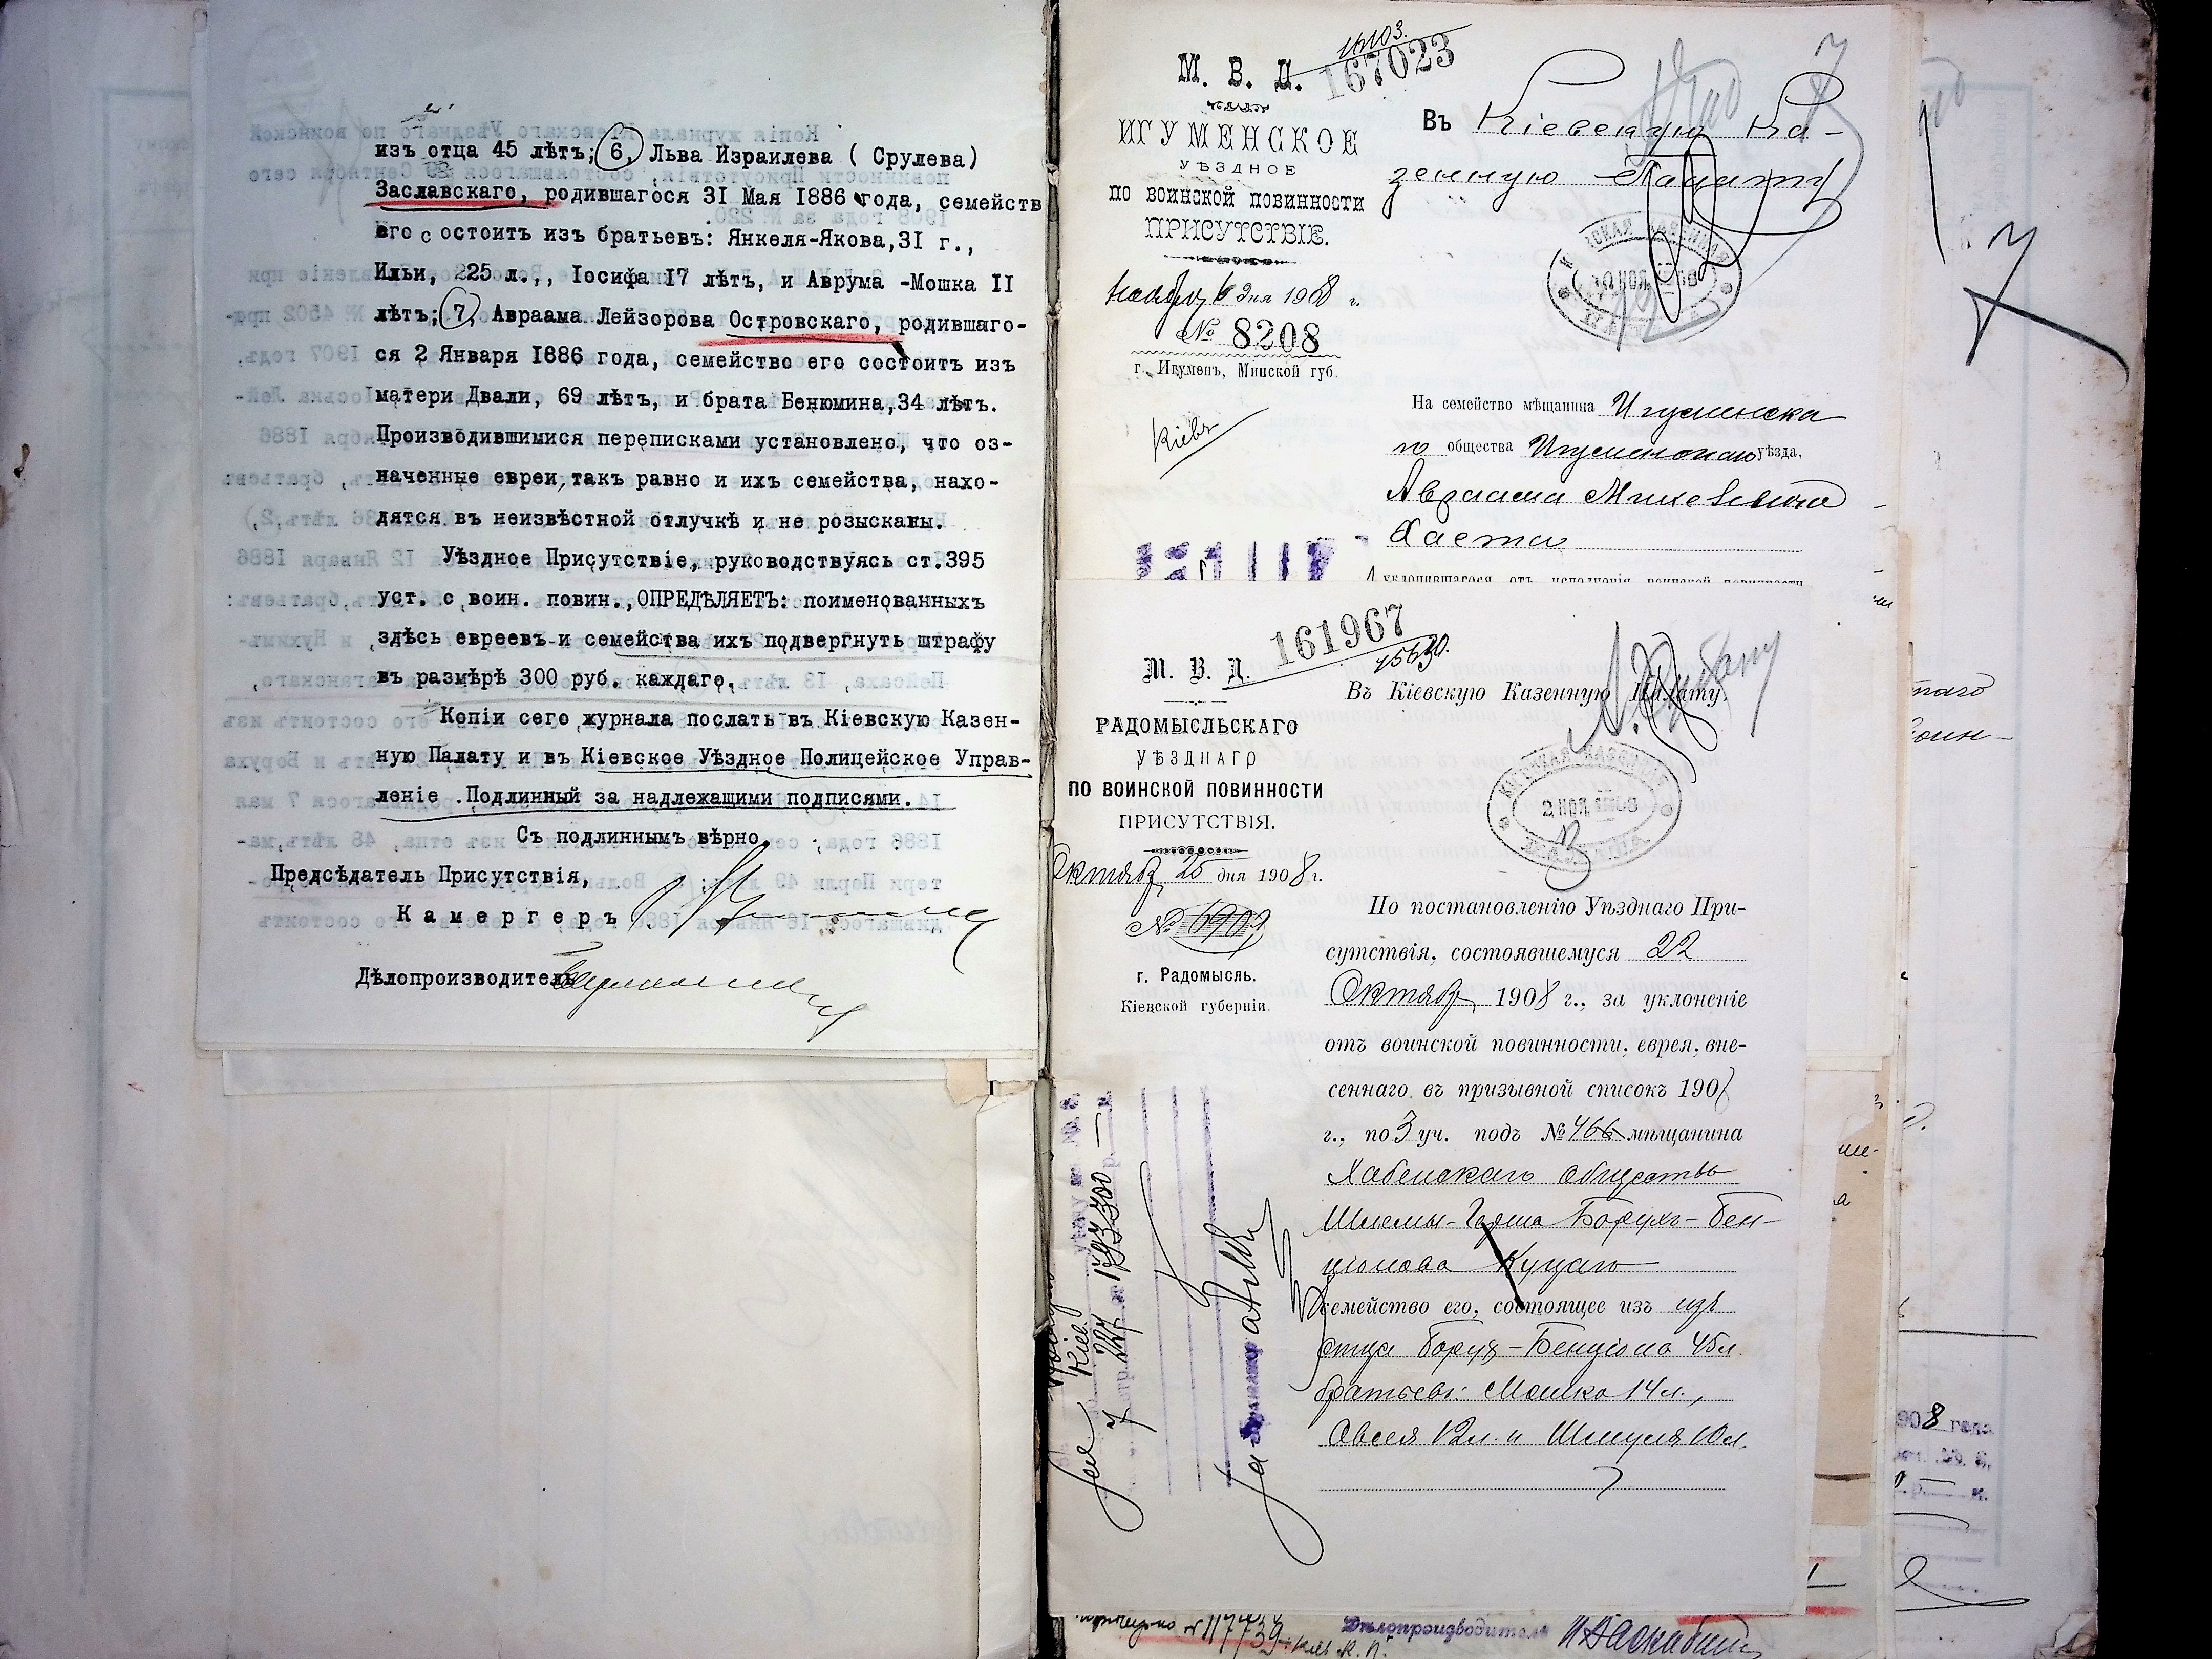 изъ отца 45 лѣтъ; 6, Льва Израилева ( Срулева)
Заславскаго, родившагося 31 Мая 1886 года, семейств
его состоитъ изъ братьевъ: Янкеля-Якова,31 г.,
Ильи, 225 л.,, Іосифа 17 лѣтъ, и Аврума -Мошка II
лѣтъ; 7, Авраама Лейзорова Островскаго, родившаго-
ся 2 Января 1886 года, семейство его состоитъ изъ
матери Двали, 69 лѣтъ, и брата Бенюмина,34 лѣтъ.
Производившимися переписками установлено, что оз-
наченные евреи, такъ равно и ихъ семейства, нахо-
дятся въ неизвѣстной отлучкѣ и не розысканы.
Уѣздное Присутствіе, руководствуясь ст.395
уст. с воин. повин.,ОПРЕДѢЛЯЕТЪ: поименованныхъ
здѣсь евреевъ и семейства ихъ подвергнуть штрафу
въ размѣрѣ 300 руб. каждаго.
Копіи сего журнала послать въ Кіевскую Казен-
ную Палату и въ Кіевское Уѣздное Полицейское Управ-
леніе .Подлинный за надлежащими подписями.
Съ подлиннымъ вѣрно.
Предсѣдатель Присутствія,
Камергеръ
Дѣлопроизводитель
М. В. Д.
167023
ИГУМЕНСКОЕ
УѢЗДНОЕ
ПО ВОИНСКОЙ ПОВИННОСТИ
ПРИСУТСТВІЕ.
Ноября 6 дня 1908 г.
№ 8208
г. Игуменъ, Минской губ.
Кіевъ
Въ Кіевскую Ка-
зенную Палату
На семейство мѣщанина Игуменска
го общества Игуменскаго уѣзда,
Авраама
уклонившагося отъ исполненія воинской повинности
161967
М. В. Д.
РАДОМЫСЛЬСКАГО
УѢЗДНАГО
ПО ВОИНСКОЙ ПОВИННОСТИ
ПРИСУТСТВІЯ.
Октября 25 дня 1908 г.
№ 6909
г. Радомысль.
Кіевской губерніи.
Въ Кіевскую Казенную Палату.
По постановленію Уѣзднаго При-
сутствія, состоявшемуся 22
Октября 1908 г., за уклоненіе
отъ воинской повинности, еврея, вне-
сеннаго въ призывной списокъ 1907
г., по 3 уч. подъ № 466 мѣщанина
Хабенскаго общества
Шлемы-Герша Борухъ-Бен-
ціонова Куцаго
семейство его, состоящее изъ изъ
отца Борух-Бенціона 45 л.
братьевъ: Мошко 14 л.,
Овсея 12 л. и Шмуля 10 л.
Дѣлопроизводитель